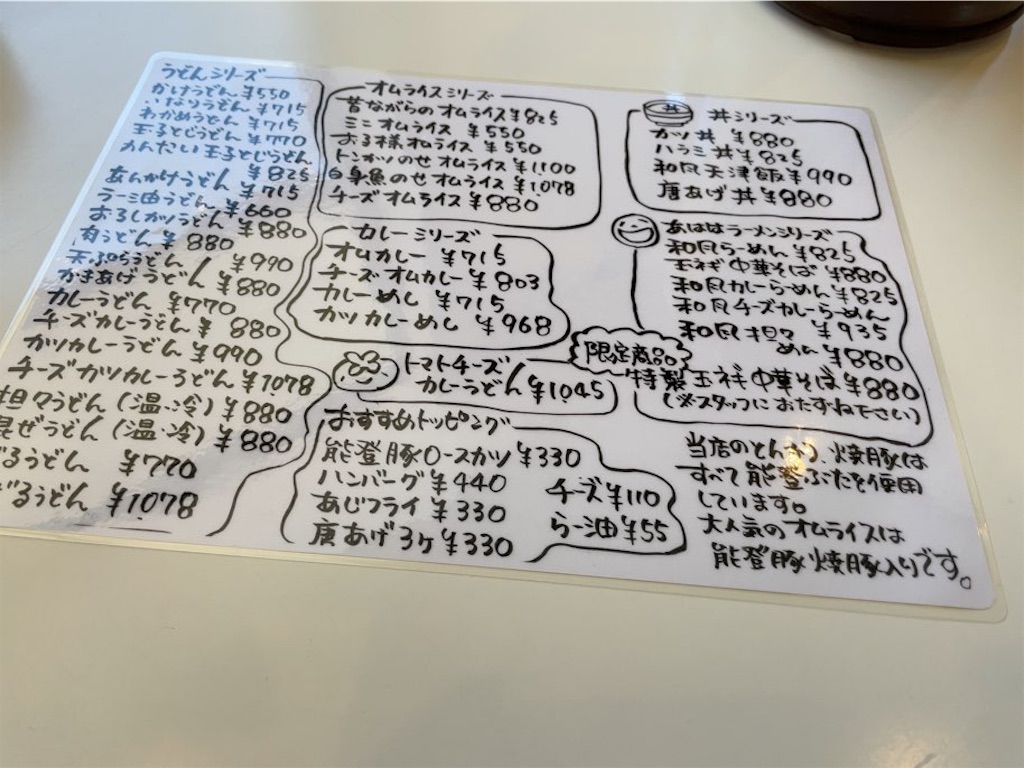 うどんシリーズ
かけうどん ¥550
いなりうどん ¥715
わかめうどん ¥715
玉子とじうどん ¥770
めんたい玉子とじうどん
¥825
あんかけうどん ¥715
ラー油うどん ¥660
おろしカツうどん ¥880
肉うどん ¥880
天ぷらうどん ¥990
かきあげうどん ¥880
カレーうどん ¥770
チーズカレーうどん ¥880
カツカレーうどん ¥990
チーズカツカレーうどん ¥1078
担々うどん (温・冷) ¥880
混ぜうどん (温・冷) ¥880
ざるうどん ¥770
ざるうどん ¥1078
オムライスシリーズ
昔ながらのオムライス ¥825
ミニオムライス ¥550
お子様オムライス ¥550
トンカツのせオムライス ¥1,100
白身魚のせオムライス ¥1,078
チーズオムライス ¥880
カレーシリーズ
オムカレー ¥715
チーズオムカレー ¥803
カレーめし ¥715
カツカレーめし ¥968
トマトチーズ
カレーうどん ¥1045
おすすめトッピング
能登豚ロースカツ ¥330
ハンバーグ ¥440
あじフライ ¥330
唐あげ3ヶ ¥330
チーズ ¥110
らー油 ¥55
丼シリーズ
カツ丼 ¥880
ハラミ丼 ¥825
和風天津飯 ¥990
唐あげ丼 ¥880
あははラーメンシリーズ
和風らーめん ¥825
玉ネギ中華そば ¥880
和風カレーらーめん ¥825
和風チーズカレーらーめん
¥935
和風担々めん ¥880
限定商品
特製玉ネギ中華そば ¥880
(※スタッフにおたずね下さい)
当店のとんかつ、焼豚は
すべて能登ぶたを使用
しています。
大人気のオムライスは
能登豚焼豚入りです。